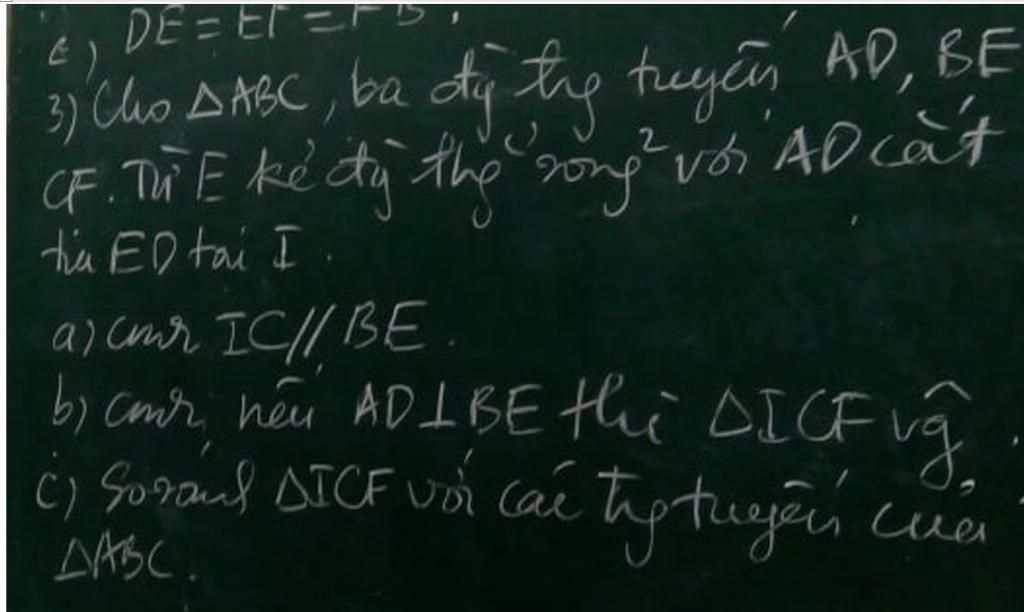 c) DE = EF = FB.
3) Cho △ABC, ba đg̀ trg tuyến AD, BE
CF. Từ E kẻ đg̀ thg̉ song² với AD cắt
tia ED tại I.
a) cmr IC // BE.
b) cmr, nếu AD ⊥ BE thì △ICF vĝ.
c) So sánh △ICF với các trg tuyến của
△ABC.